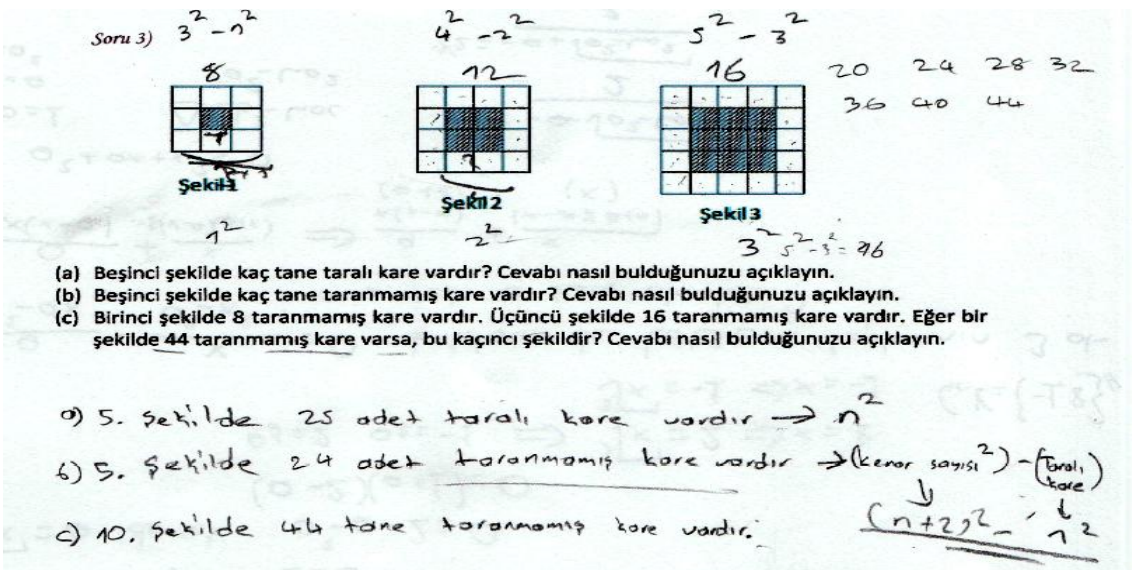 Soru 3) 3² - 1² 4² - 2² 5² - 3²
8 12 16 20 24 28 32
36 40 44
Şekil 1 Şekil 2 Şekil 3
1² 2² 3² 5² - 3² = 16
(a) Beşinci şekilde kaç tane taralı kare vardır? Cevabı nasıl bulduğunuzu açıklayın.
(b) Beşinci şekilde kaç tane taranmamış kare vardır? Cevabı nasıl bulduğunuzu açıklayın.
(c) Birinci şekilde 8 taranmamış kare vardır. Üçüncü şekilde 16 taranmamış kare vardır. Eğer bir
şekilde 44 taranmamış kare varsa, bu kaçıncı şekildir? Cevabı nasıl bulduğunuzu açıklayın.
a) 5. şekilde 25 adet taralı kare vardır → n²
b) 5. şekilde 24 adet taranmamış kare vardır → (kenar sayısı²) - (Taralı kare)
c) 10. şekilde 44 tane taranmamış kare vardır. (n+2)² - n²